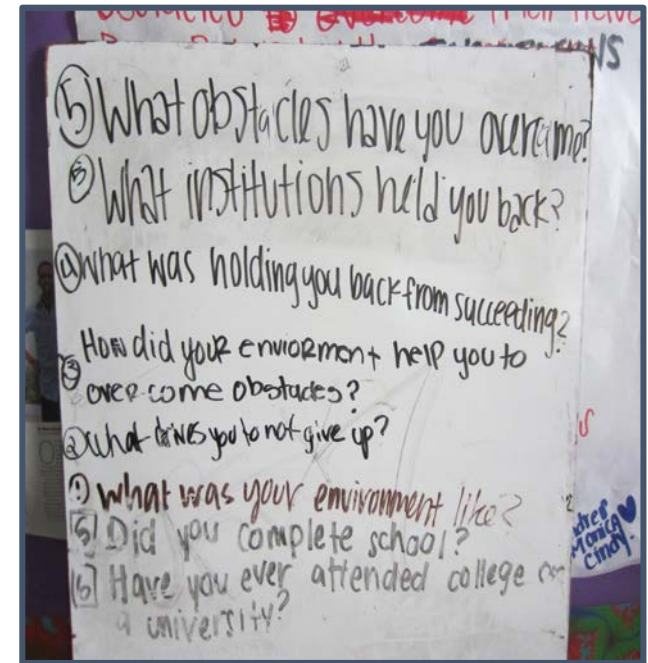 NS
⑤ What obstacles have you overcame?
⑤ What institutions held you back?
④ What was holding you back from succeeding?
③ How did your enviorment help you to
over come obstacles?
② What drives you to not give up?
① What was your environment like?
[5] Did you complete school?
[6] Have you ever attended college or
a university?
Monica
Cindy